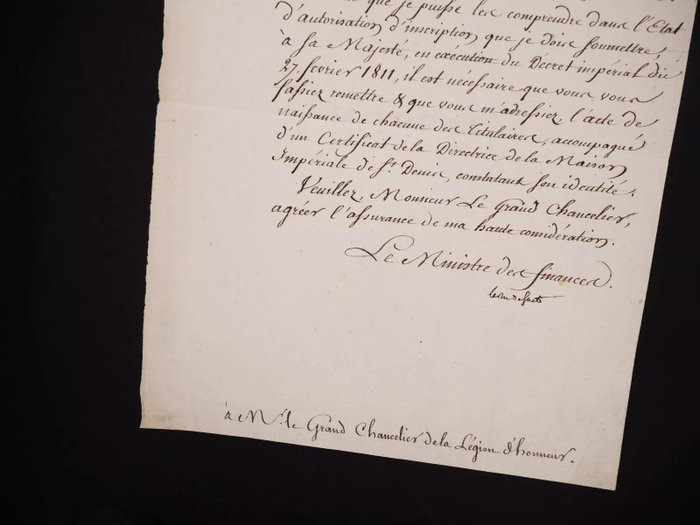 que je pusse les comprendre dans l'Etat
d'autorisation d'inscription que je dois soumettre
à sa Majesté, en exécution du Decret impérial du
27. fevrier 1811, il est nécessaire que vous vous
fassiez remettre & que vous m'adressiez, l'acte de
naissance de chacune des titulaires, accompagné
d'un Certificat de la Directrice de la Maison
Impériale de St. Denis, constatant son identité.
Veuillez, Monsieur Le Grand Chancelier,
agréer l'assurance de ma haute considération.
Le Ministre des finances.
à Mr. le Grand Chancelier de la Légion d'honneur.